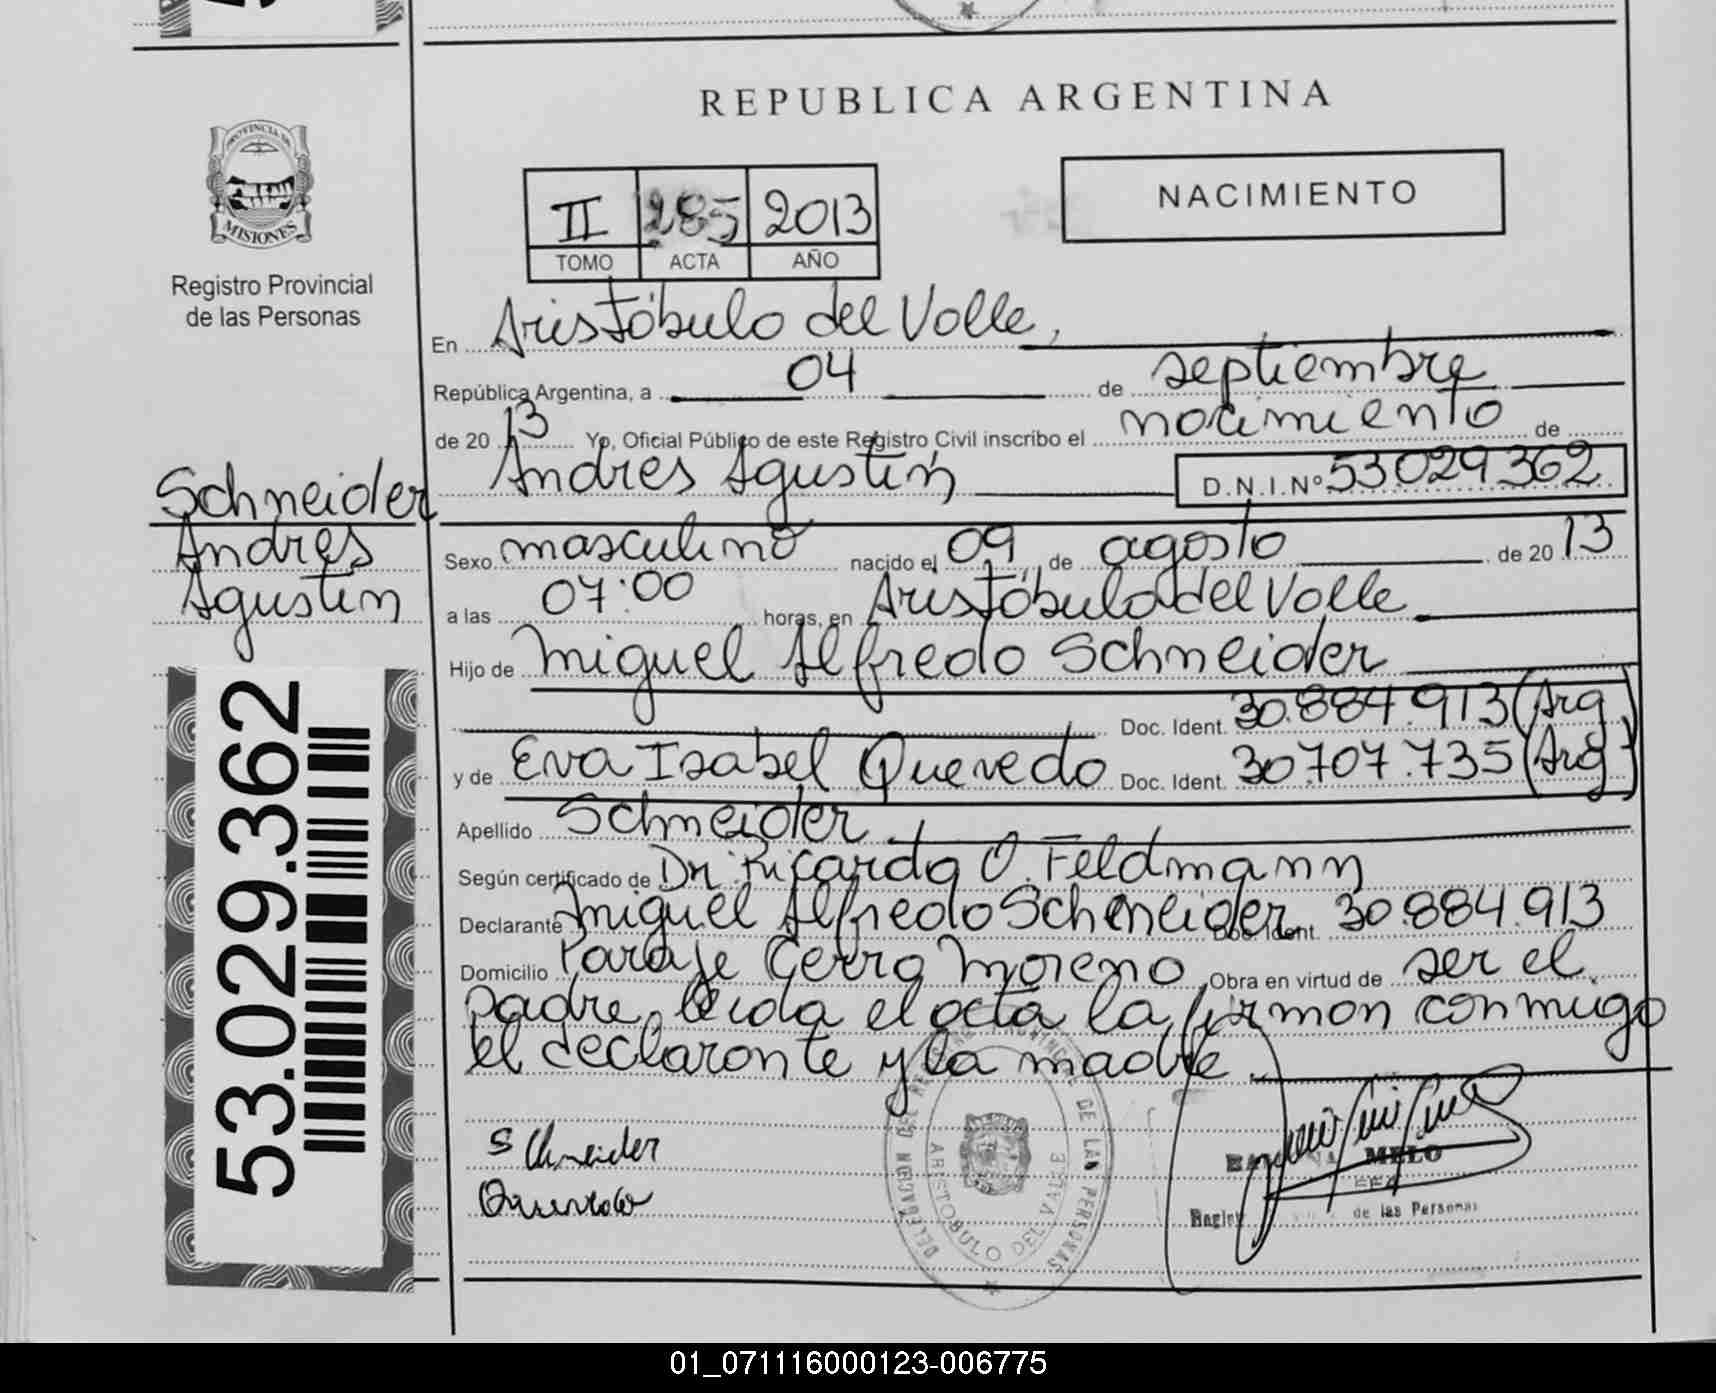 REPUBLICA ARGENTINA
PROVINCIA DE
MISIONES
Registro Provincial
de las Personas
NACIMIENTO
II 285 2013
TOMO ACTA AÑO
En Aristóbulo del Valle,
República Argentina, a 04 de septiembre
de 20 13 Yo, Oficial Público de este Registro Civil inscribo el nacimiento de
Andres Agustín D.N.I.Nº 53029362
Schneider
Andres
Agustín
Sexo masculino nacido el 09 de agosto de 20 13
a las 07:00 horas, en Aristóbulo del Valle
Hijo de Miguel Alfredo Schneider
Doc. Ident. 30.884.913 (Arg)
y de Eva Isabel Quevedo Doc. Ident. 30.707.735 (Arg)
Apellido Schneider
Según certificado de Dr. Ricardo O. Feldmann
Declarante Miguel Alfredo Schneider Doc. Ident. 30.884.913
Domicilio Paraje Cerro Moreno Obra en virtud de ser el
padre, leída el acta la firman conmigo
el declarante y la madre.
53.029.362
Schneider
Quevedo
DELEGACION DEL DE LAS PERSONAS
ARISTOBULO DEL VALLE
MELO
de las Personas
01_071116000123-006775